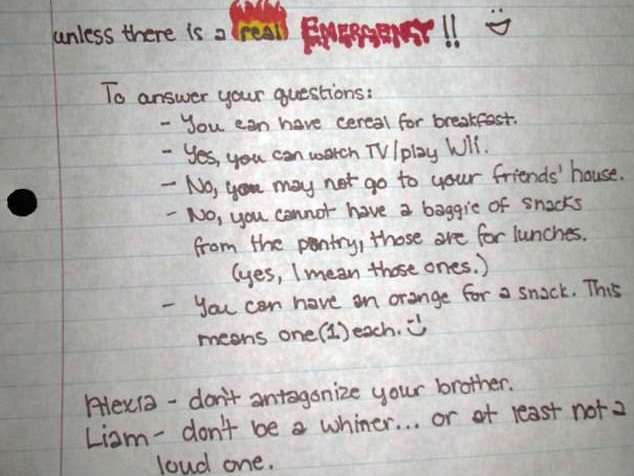 unless there is a real EMERGENCY!!
To answer your questions:
- You can have cereal for breakfast.
- Yes, you can watch TV/play WII.
- No, you may not go to your friends' house.
- No, you cannot have a baggie of snacks
from the pantry, those are for lunches.
(yes, I mean those ones.)
- You can have an orange for a snack. This
means one (1) each. :)
Alexia - don't antagonize your brother.
Liam - don't be a whiner... or at least not a
loud one.